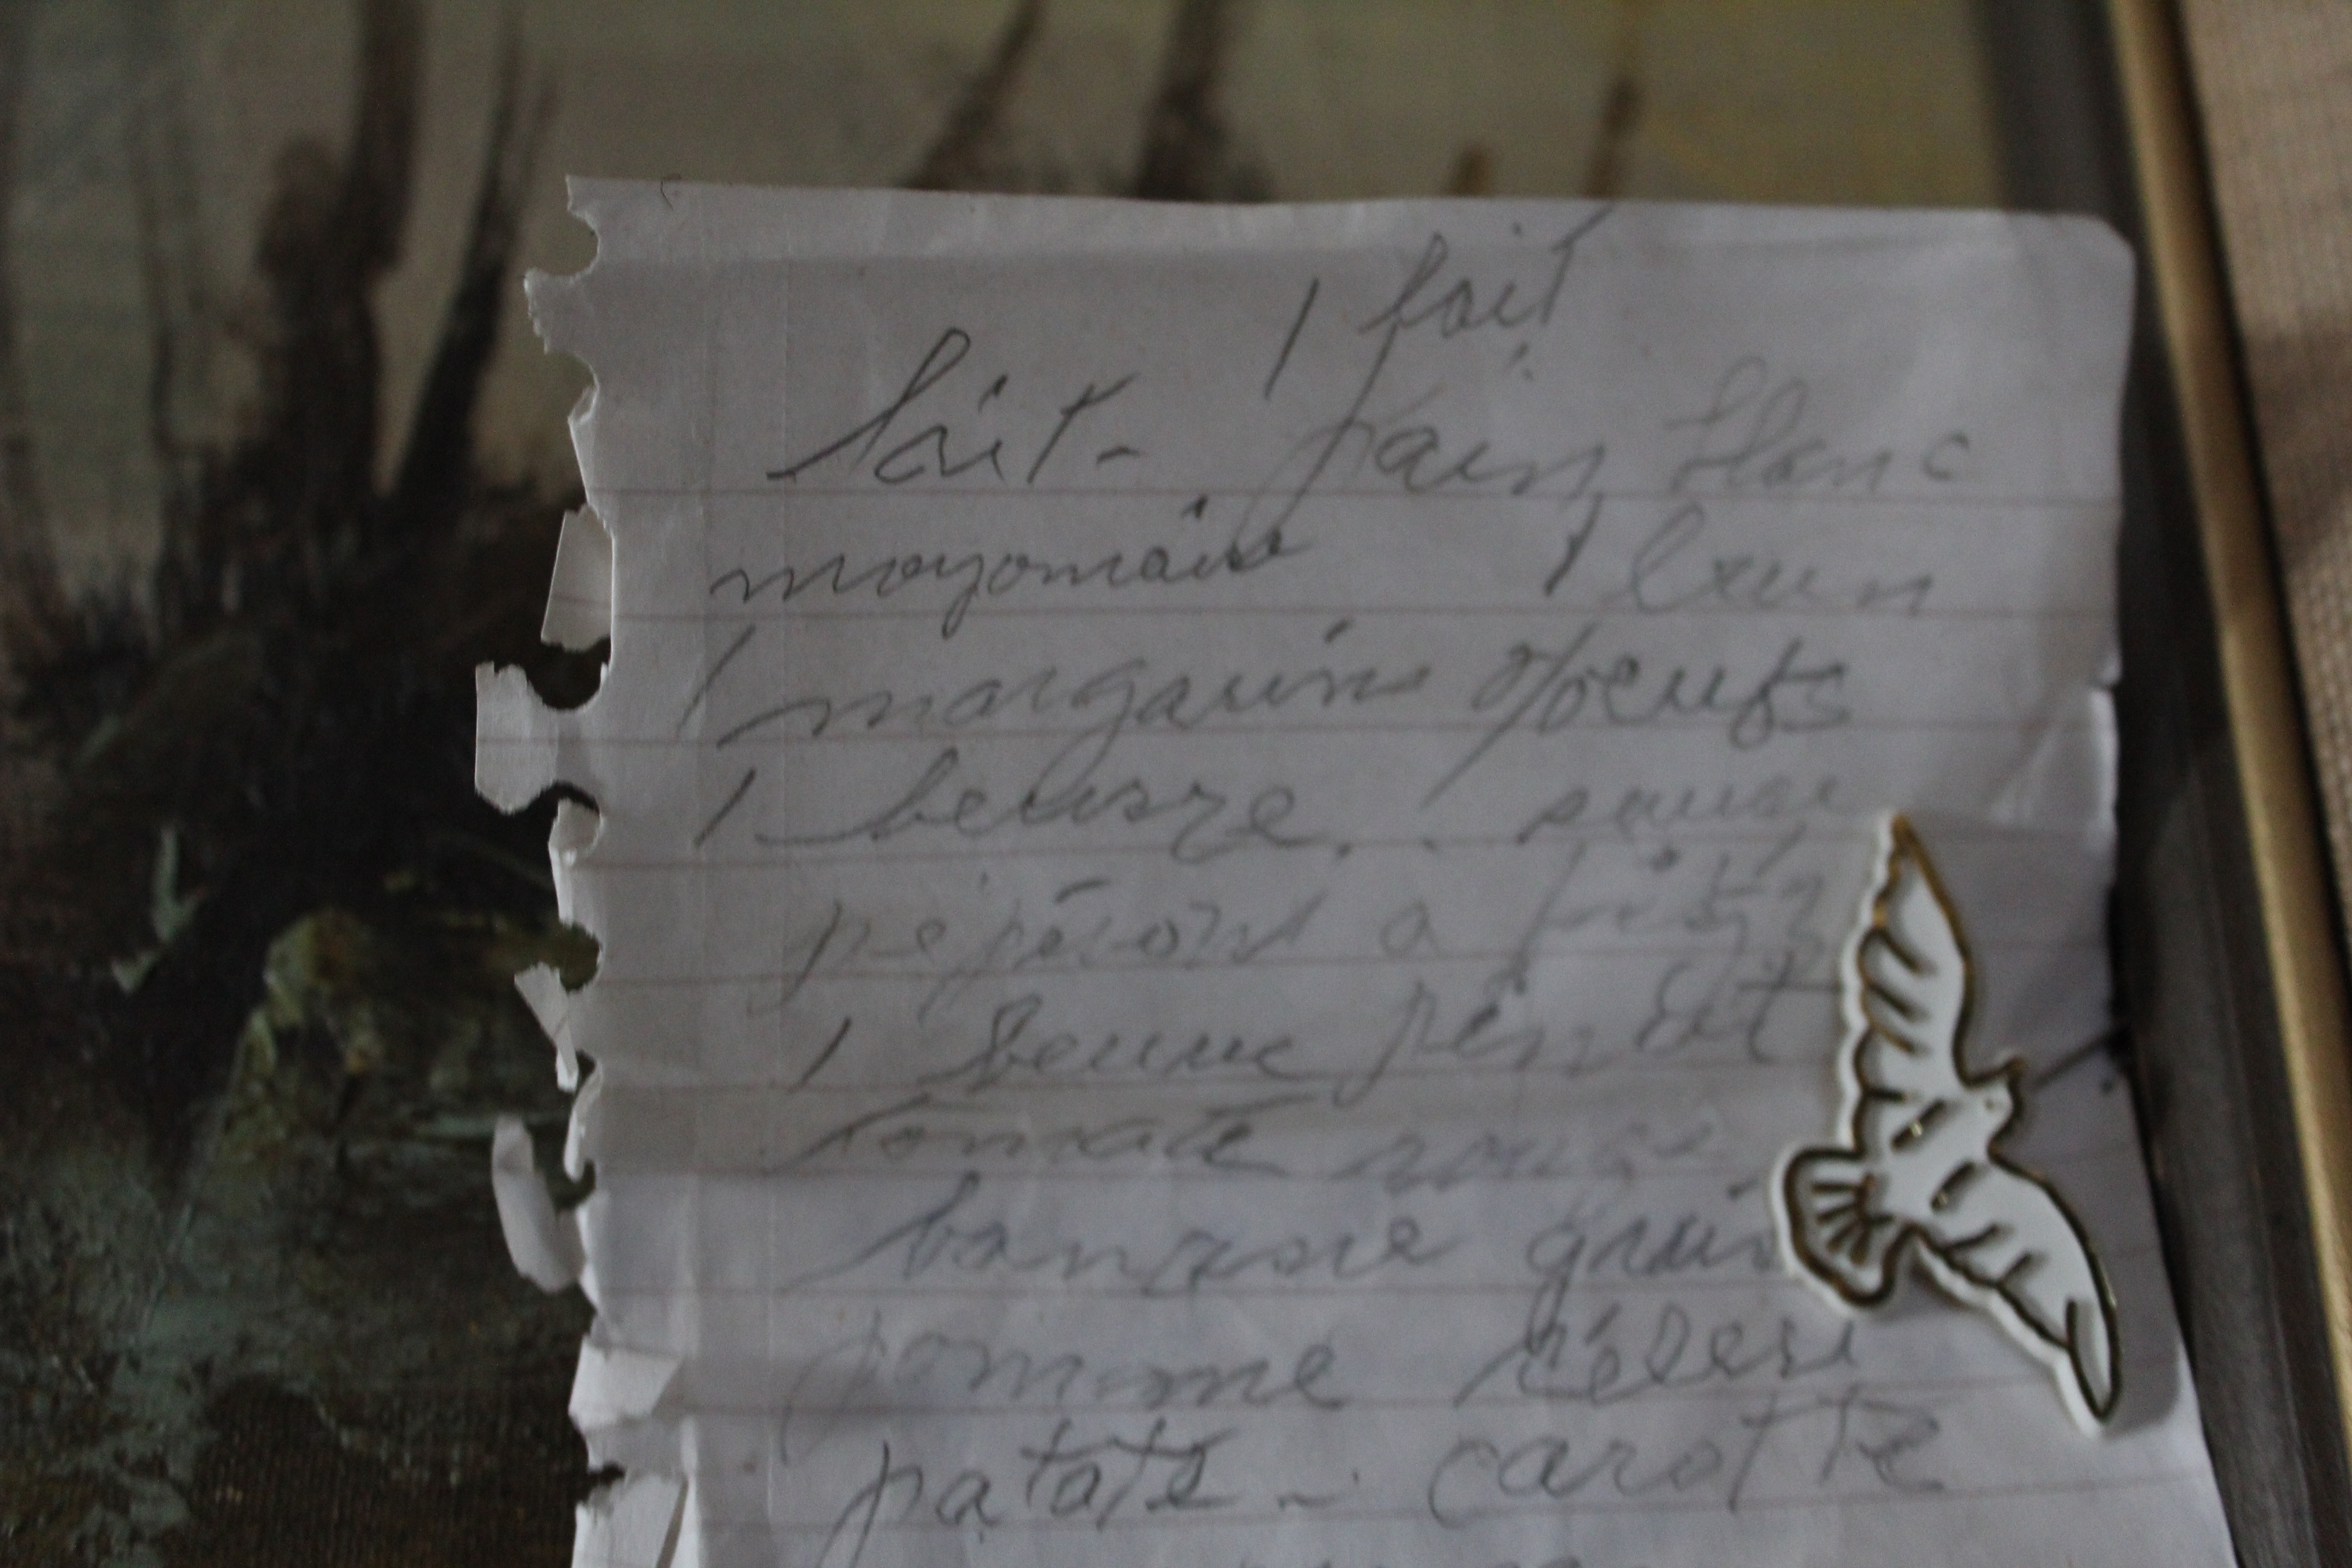 1 lait
lait - pain blanc
mayonaise 1 brun
1 margarine oeufs
1 beurre . . sauce
pepéroni a pizza
1 beurre pinot
tomate rouge
banane
pomme céleri
patate - carotte